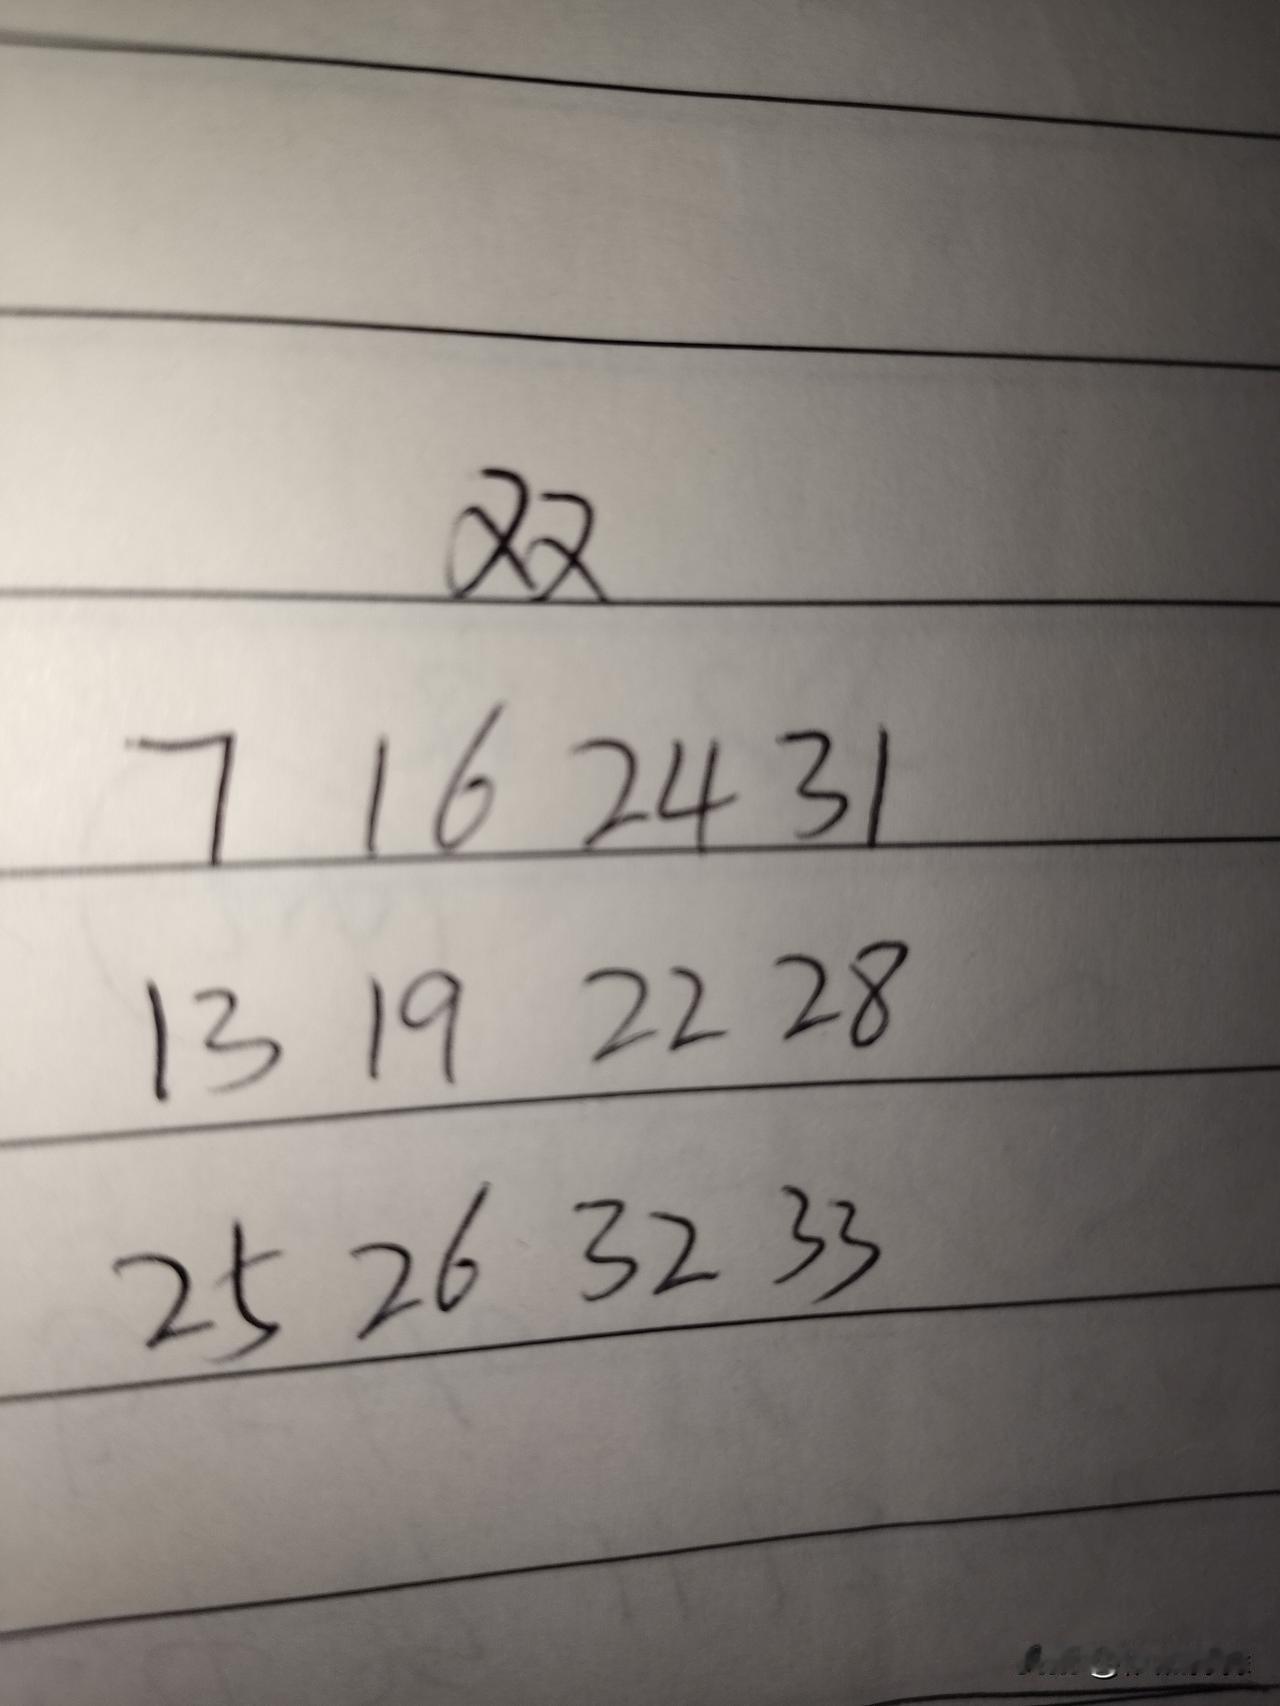 双
7 16 24 31
13 19 22 28
25 26 32 33